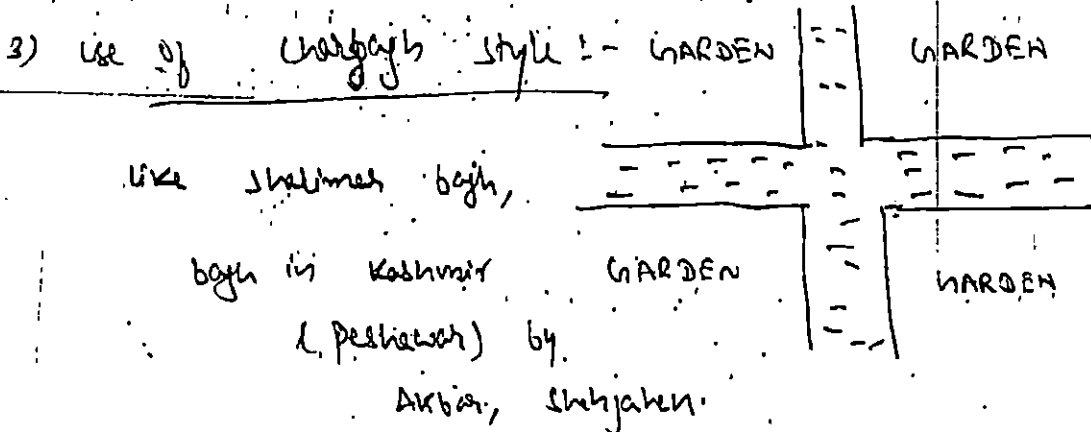 3) use of charbagh style :- GARDEN GARDEN
like shalimar bagh,
bagh in Kashmir GARDEN GARDEN
(, Peshawar) by
Akbar, Shahjahan.